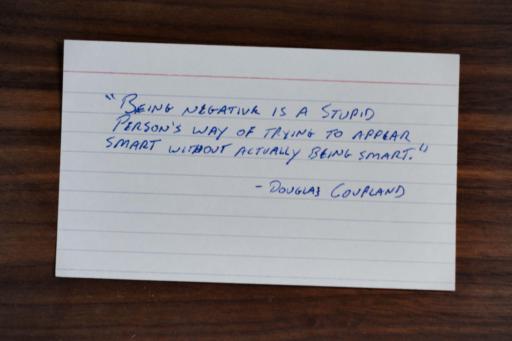 "BEING NEGATIVE IS A STUPID
PERSON'S WAY OF TRYING TO APPEAR
SMART WITHOUT ACTUALLY BEING SMART."
- DOUGLAS COUPLAND